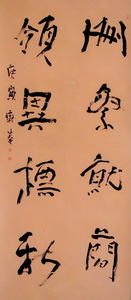 刪繁就簡
領異標新
庚寅